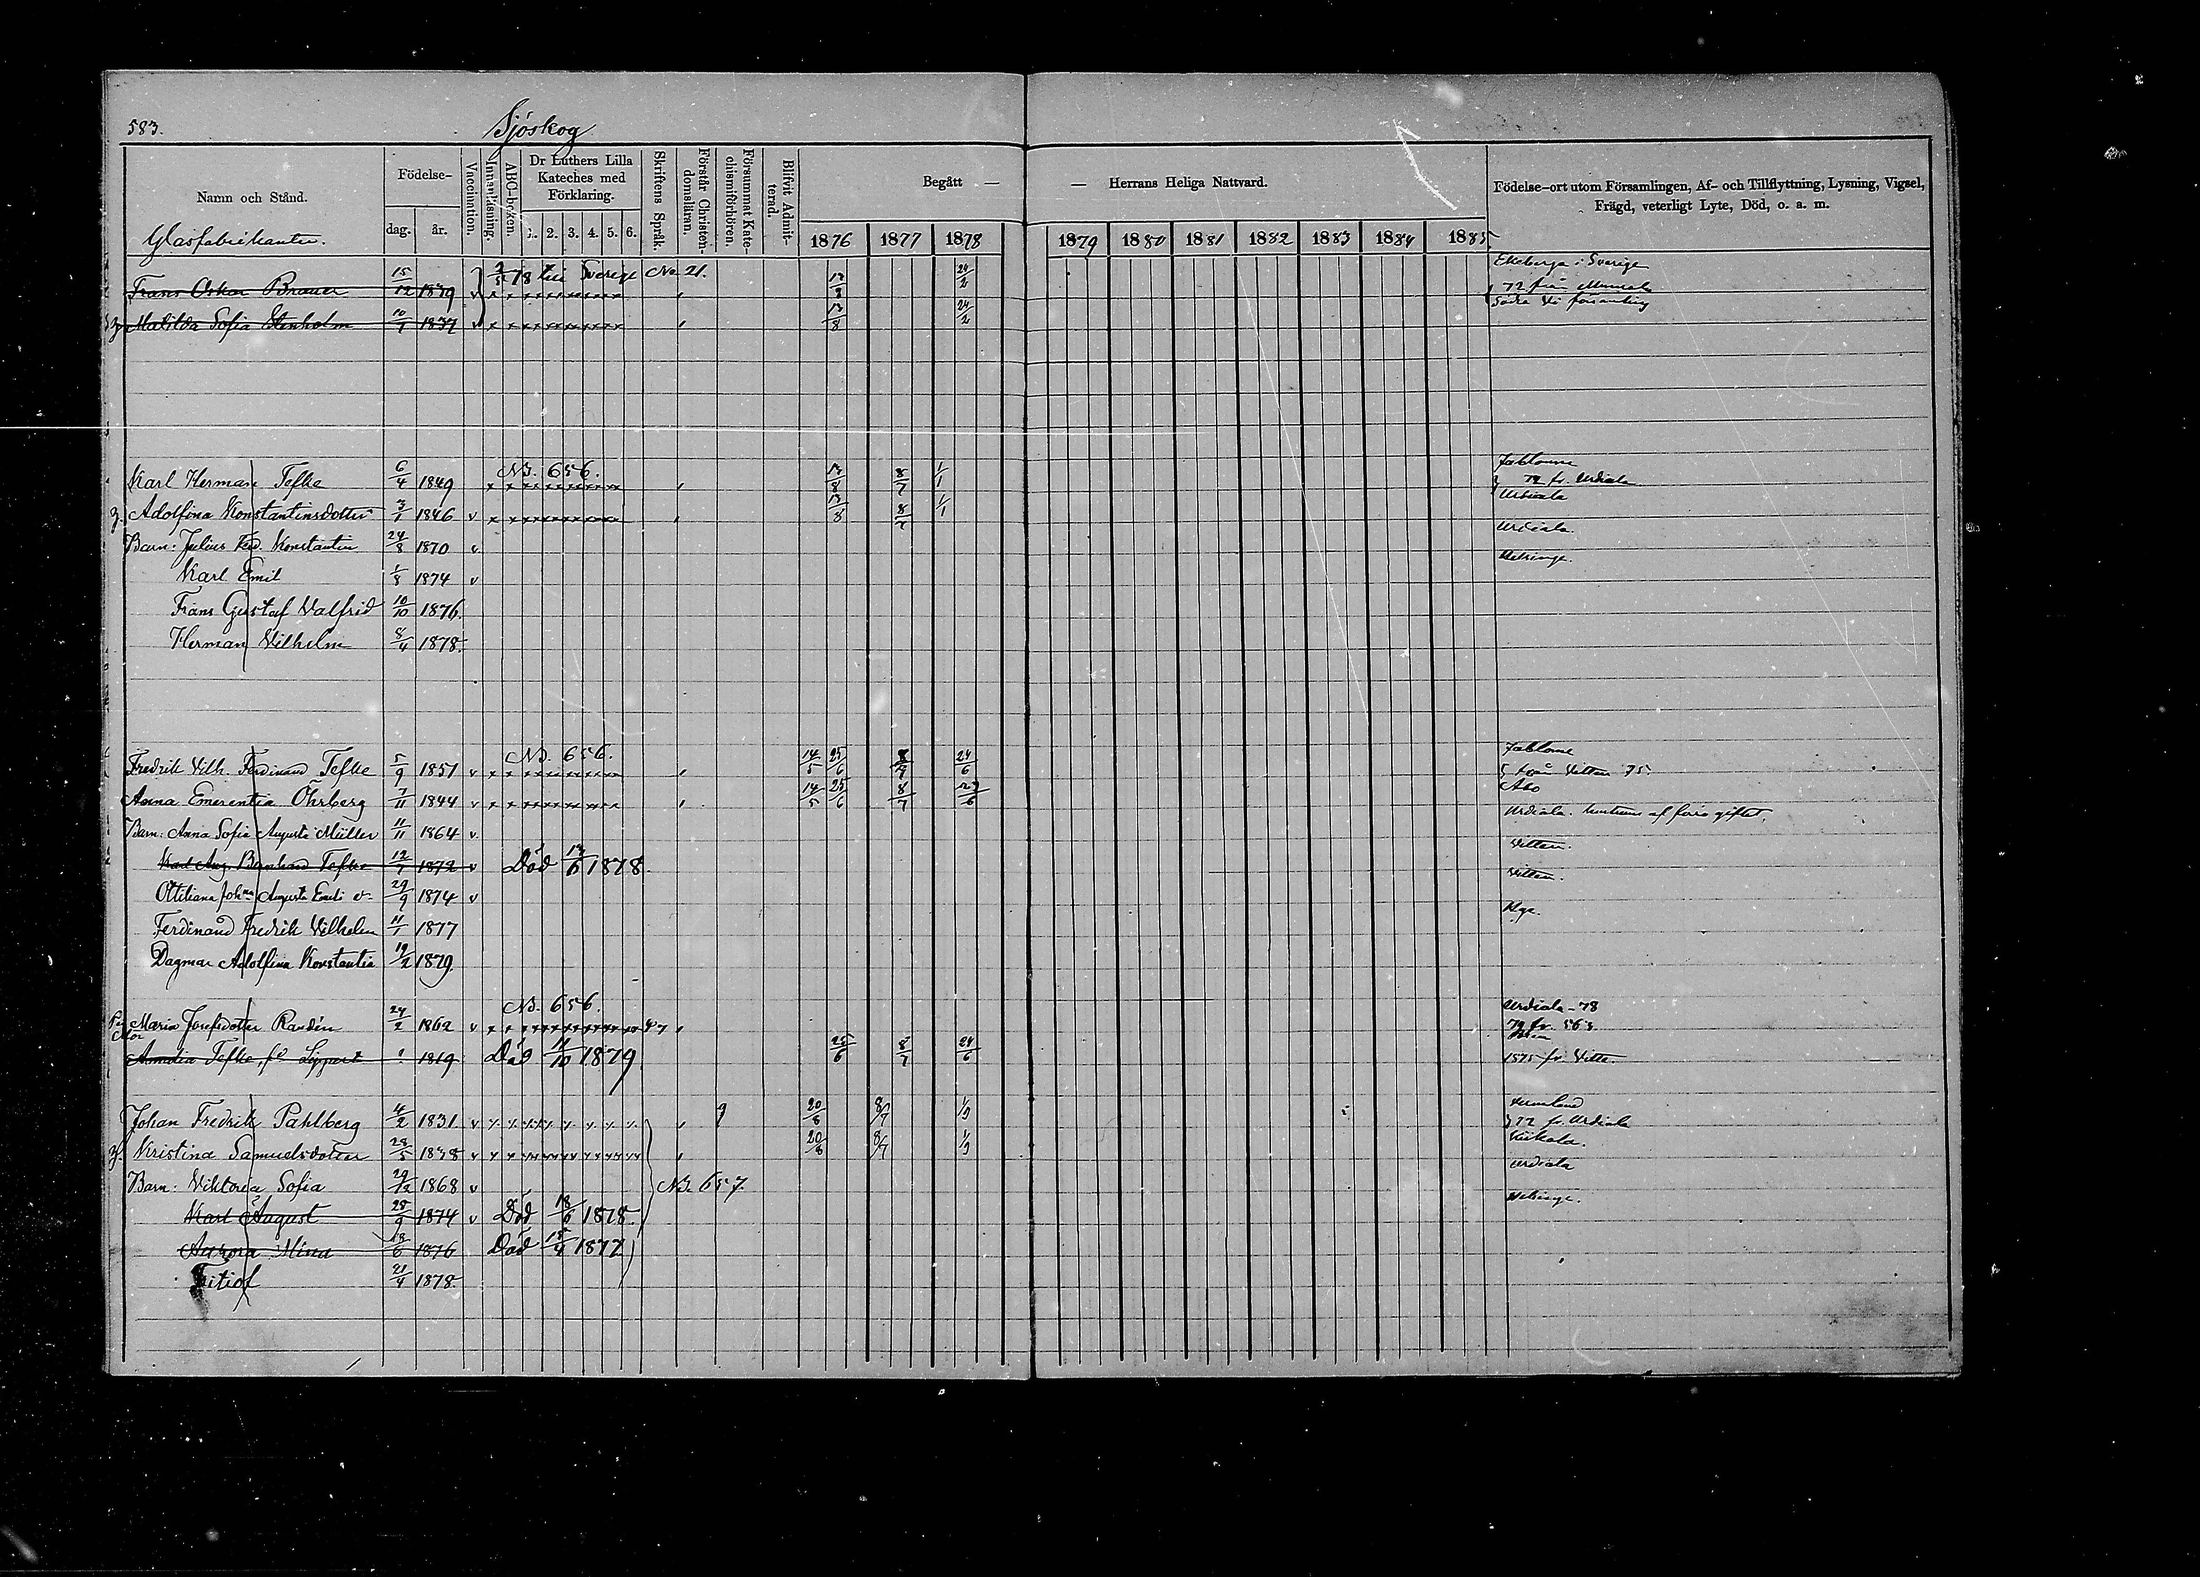 583.
Sjöskog
Namn och Stånd.
Födelse-
dag. år.
Vaccination.
Innanläsning.
ABC-boken.
Dr Luthers Lilla Kateches med Förklaring.
1. 2. 3. 4. 5. 6.
Skriftens Språk.
Förstår Christendomsläran.
Försummat Katechismiförhören.
Blifvit Admitterad.
Begått — — Herrans Heliga Nattvard.
1876 1877 1878 1879 1880 1881 1882 1883 1884 1885
Födelse-ort utom Församlingen, Af- och Tillflyttning, Lysning, Vigsel, Frägd, veterligt Lyte, Död, o. a. m.
Glasfabrikanter.
Frans Oskar Brauer 15/12 1839 v 18 till Sverige No 21. Ekeberga i Sverige
Matilda Sofia Stenholm 10/7 1837 v 13/8 24/2 Södra Vi församling
Karl Herman Tefke 6/4 1849 N3. 656. 13/8 8/7 1/1 Jablome 72 fr. Urdiala
Adolfina Konstantinsdotter 3/1 1846 v 13/8 8/7 1/1 Urdiala
Barn: Julius Ferd. Konstantin 24/8 1870 v Urdiala.
Karl Emil 1/8 1874 v Helsinge.
Frans Gustaf Valfrid 10/10 1876.
Herman Vilhelm 8/4 1878.
Fredrik Vilh. Ferdinand Tefke 5/9 1851 v N3. 656. 14/5 25/6 8/7 24/6 Jablome från Vittan 75.
Anna Emerentia Öhrberg 7/11 1844 v 14/5 25/6 8/7 23/6 Åbo
Barn: Anna Sofia Augusta Müller 11/11 1864 v. Urdiala. hustruns af förra giftet.
Karl Aug. Barnhard Tefke 12/7 1872 v Död 13/6 1878. Vittan.
Ottiliana Augusta Emili 29/9 1874 v Vittan.
Ferdinand Fredrik Vilhelm 11/1 1877
Dagmar Adolfina Konstantia 19/2 1879.
Maria Josefsdotter Randén 24/2 1862 v N3. 656. Urdiala - 78
Amalia Tefke, fd Lippert 1819 Död 11/10 1879 25/6 8/7 24/6 1875 fr. Vitta.
Johan Fredrik Pahlberg 4/2 1831 v 9 20/8 8/7 1/9 72 fr. Urdiala
Kristina Samuelsdotter 28/5 1838 v 20/8 8/7 1/9 Kiikala.
Barn: Viktoria Sofia 29/12 1868 v N3. 657. Urdiala
Karl August 28/9 1874 v Död 18/6 1878. Helsinge.
Aurora Mina 18/6 1876 Död 15/4 1877
Fritiof 21/4 1878.